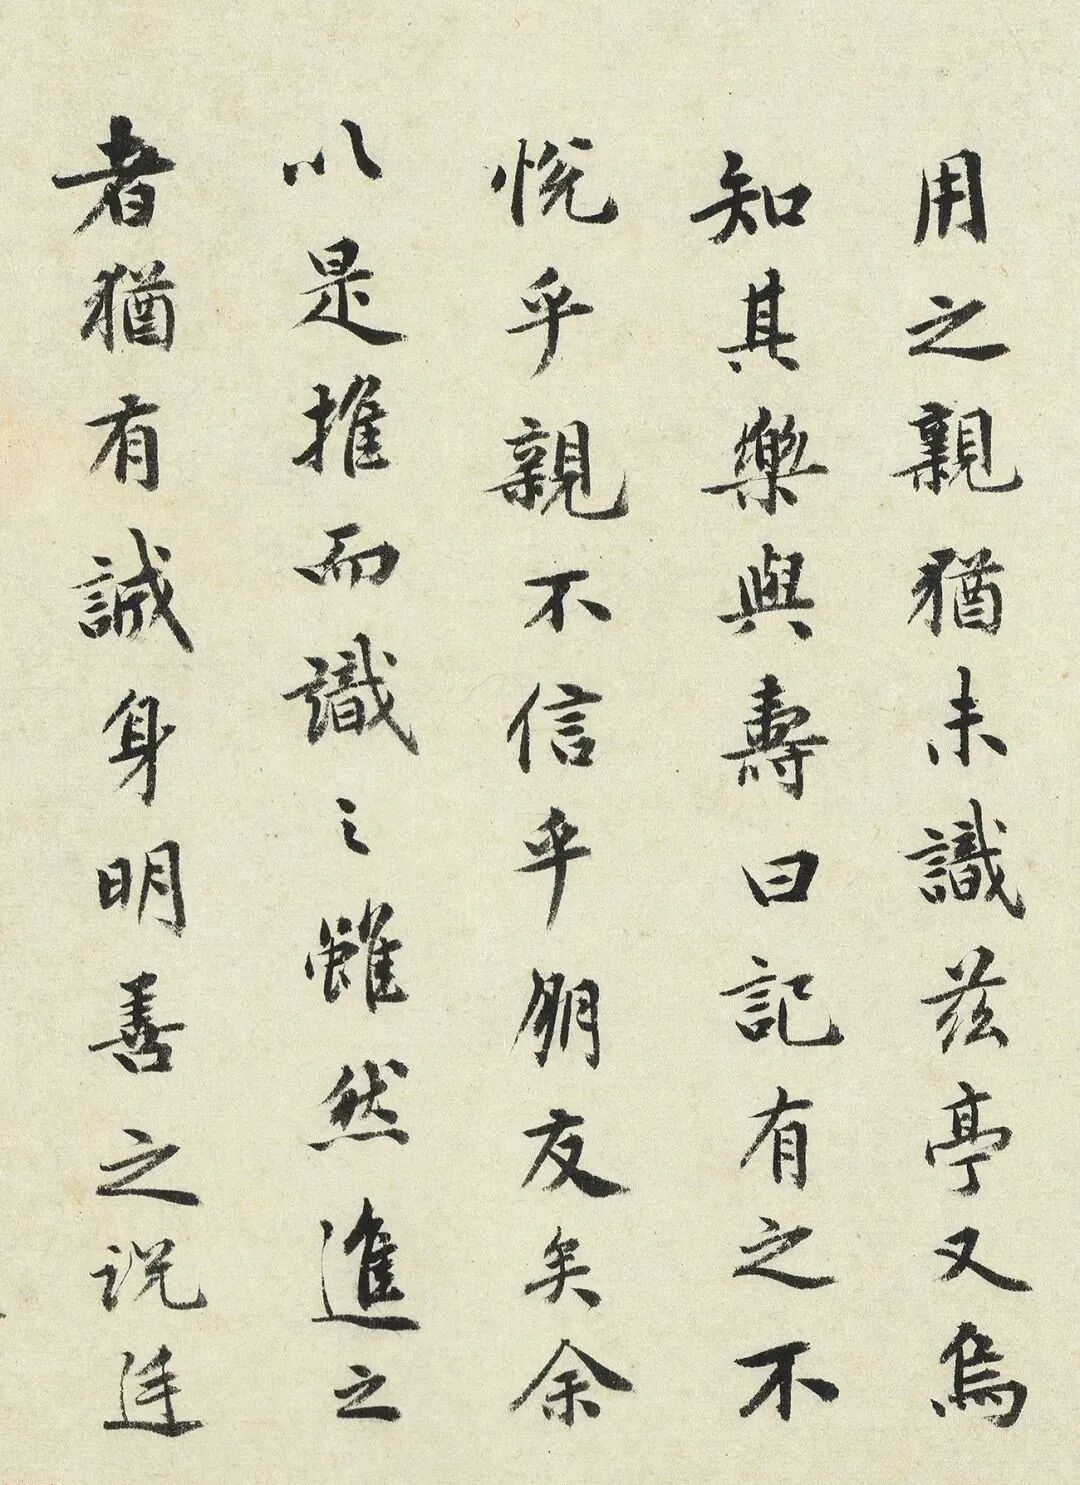 用之親猶未識茲亭又烏
知其樂與壽曰記有之不
悅乎親不信乎朋友矣余
以是推而識之雖然進之
者猶有誠身明善之説廷